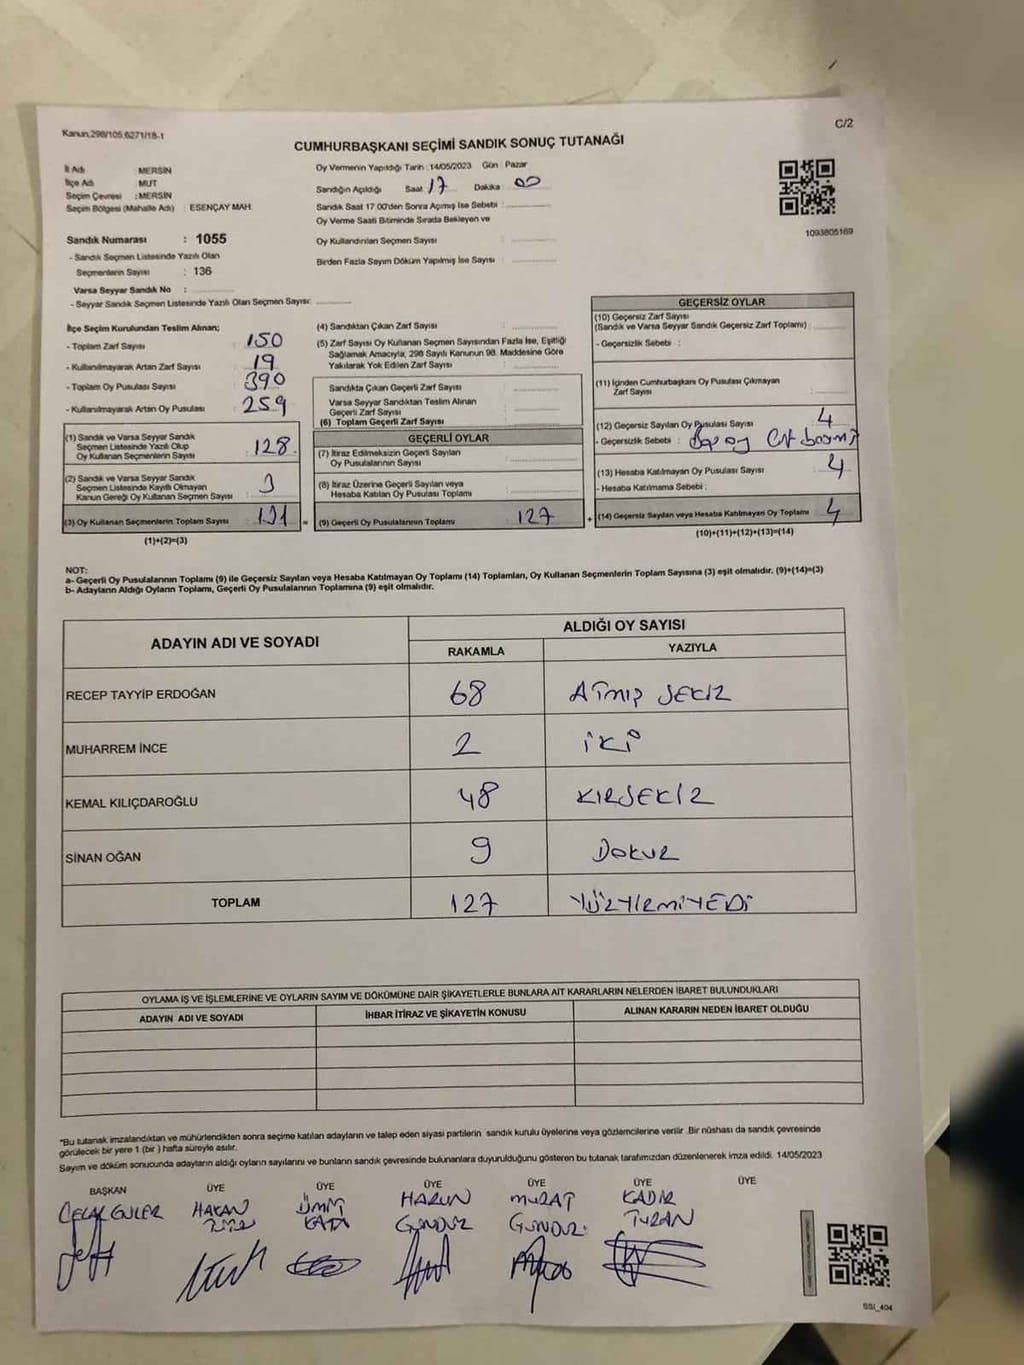 Kanun,298/105;6271/18-1
C/2
CUMHURBAŞKANI SEÇİMİ SANDIK SONUÇ TUTANAĞI
İl Adı : MERSİN
İlçe Adı : MUT
Seçim Çevresi : MERSİN
Seçim Bölgesi (Mahalle Adı) : ESENÇAY MAH.
Oy Vermenin Yapıldığı Tarih :14/05/2023 Gün Pazar
Sandığın Açıldığı Saat 17 Dakika : 00
Sandık Saat 17.00'den Sonra Açımış İse Sebebi :
Oy Verme Saati Bitiminde Sırada Bekleyen ve
Oy Kullandırılan Seçmen Sayısı :
Birden Fazla Sayım Döküm Yapılmış İse Sayısı :
1093805169
Sandık Numarası : 1055
- Sandık Seçmen Listesinde Yazılı Olan
Seçmenlerin Sayısı : 136
Varsa Seyyar Sandık No :
- Seyyar Sandık Seçmen Listesinde Yazılı Olan Seçmen Sayısı:
İlçe Seçim Kurulundan Teslim Alınan;
- Toplam Zarf Sayısı : 150
- Kullanılmayarak Artan Zarf Sayısı : 19
- Toplam Oy Pusulası Sayısı : 390
- Kullanılmayarak Artan Oy Pusulası : 259
(1) Sandık ve Varsa Seyyar Sandık
Seçmen Listesinde Yazılı Olup
Oy Kullanan Seçmenlerin Sayısı : 128
(2) Sandık ve Varsa Seyyar Sandık
Seçmen Listesinde Kayıtlı Olmayan
Kanun Gereği Oy Kullanan Seçmen Sayısı : 3
(3) Oy Kullanan Seçmenlerin Toplam Sayısı : 131 =
(1)+(2)=(3)
(4) Sandıktan Çıkan Zarf Sayısı :
(5) Zarf Sayısı Oy Kullanan Seçmen Sayısından Fazla İse, Eşitliği
Sağlamak Amacıyla, 298 Sayılı Kanunun 98. Maddesine Göre
Yakılarak Yok Edilen Zarf Sayısı :
Sandıkta Çıkan Geçerli Zarf Sayısı :
Varsa Seyyar Sandıktan Teslim Alınan
Geçerli Zarf Sayısı :
(6) Toplam Geçerli Zarf Sayısı :
GEÇERLİ OYLAR
(7) İtiraz Edilmeksizin Geçerli Sayılan
Oy Pusulalarının Sayısı :
(8) İtiraz Üzerine Geçerli Sayılan veya
Hesaba Katılan Oy Pusulası Toplamı :
(9) Geçerli Oy Pusulalarının Toplamı : 127 +
GEÇERSİZ OYLAR
(10) Geçersiz Zarf Sayısı
(Sandık ve Varsa Seyyar Sandık Geçersiz Zarf Toplamı) :
- Geçersizlik Sebebi :
(11) İçinden Cumhurbaşkanı Oy Pusulası Çıkmayan
Zarf Sayısı :
(12) Geçersiz Sayılan Oy Pusulası Sayısı : 4
- Geçersizlik Sebebi :
(13) Hesaba Katılmayan Oy Pusulası Sayısı : 4
- Hesaba Katılmama Sebebi :
(14) Geçersiz Sayılan veya Hesaba Katılmayan Oy Toplamı : 4
(10)+(11)+(12)+(13)=(14)
NOT:
a- Geçerli Oy Pusulalarının Toplamı (9) ile Geçersiz Sayılan veya Hesaba Katılmayan Oy Toplamı (14) Toplamları, Oy Kullanan Seçmenlerin Toplam Sayısına (3) eşit olmalıdır. (9)+(14)=(3)
b- Adayların Aldığı Oyların Toplamı, Geçerli Oy Pusulalarının Toplamına (9) eşit olmalıdır.
ADAYIN ADI VE SOYADI
ALDIĞI OY SAYISI
RAKAMLA YAZIYLA
RECEP TAYYİP ERDOĞAN 68 ATmıŞ SEKİZ
MUHARREM İNCE 2 İKİ
KEMAL KILIÇDAROĞLU 48 KIRSEKİZ
SİNAN OĞAN 9 DOKUZ
TOPLAM 127 YÜZYİRMİYEDİ
OYLAMA İŞ VE İŞLEMLERİNE VE OYLARIN SAYIM VE DÖKÜMÜNE DAİR ŞİKAYETLERLE BUNLARA AİT KARARLARIN NELERDEN İBARET BULUNDUKLARI
ADAYIN ADI VE SOYADI İHBAR İTİRAZ VE ŞİKAYETİN KONUSU ALINAN KARARIN NEDEN İBARET OLDUĞU
*Bu tutanak imzalandıktan ve mühürlendikten sonra seçime katılan adayların ve talep eden siyasi partilerin sandık kurulu üyelerine veya gözlemcilerine verilir .Bir nüshası da sandık çevresinde
görülecek bir yere 1 (bir ) hafta süreyle asılır.
Sayım ve döküm sonucunda adayların aldığı oyların sayılarını ve bunların sandık çevresinde bulunanlara duyurulduğunu gösteren bu tutanak tarafımızdan düzenlenerek imza edildi. 14/05/2023
BAŞKAN ÜYE ÜYE ÜYE ÜYE ÜYE ÜYE
CELAL GÜLER HAKAN ÜMİT HARUN MURAT KADİR
KAYA GÜNDÜZ GÜNDÜZ TURAN
SSI_404